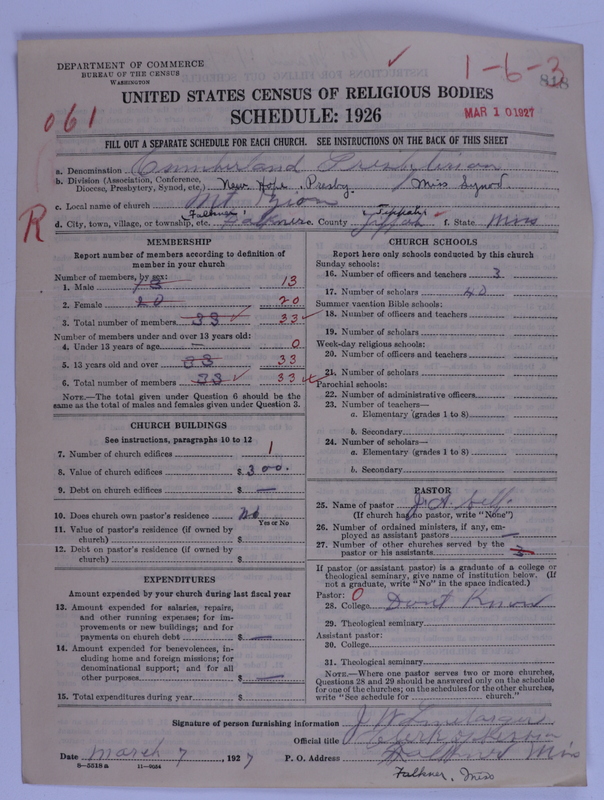 DEPARTMENT OF COMMERCE
BUREAU OF THE CENSUS
WASHINGTON
1-6-3
818
UNITED STATES CENSUS OF RELIGIOUS BODIES
SCHEDULE: 1926
MAR 10 1927
061
FILL OUT A SEPARATE SCHEDULE FOR EACH CHURCH. SEE INSTRUCTIONS ON THE BACK OF THIS SHEET
a. Denomination Cumberland Presbyterian
b. Division (Association, Conference, Diocese, Presbytery, Synod, etc.) New Hope Presby. Miss Synod
c. Local name of church Mt Zion
R
d. City, town, village, or township, etc. Falkner e. County Tippah f. State Miss
MEMBERSHIP
Report number of members according to definition of member in your church
Number of members, by sex:
1. Male 13 13
2. Female 20 20
3. Total number of members 33 33
Number of members under and over 13 years old:
4. Under 13 years of age — 0
5. 13 years old and over 33 33
6. Total number of members 33 33
NOTE.—The total given under Question 6 should be the same as the total of males and females given under Question 3.
CHURCH BUILDINGS
See instructions, paragraphs 10 to 12
7. Number of church edifices 1
8. Value of church edifices $ 300.
9. Debt on church edifices $ —
10. Does church own pastor's residence no
Yes or No
11. Value of pastor's residence (if owned by church) $
12. Debt on pastor's residence (if owned by church) $
EXPENDITURES
Amount expended by your church during last fiscal year
13. Amount expended for salaries, repairs, and other running expenses; for improvements or new buildings; and for payments on church debt $ —
14. Amount expended for benevolences, including home and foreign missions; for denominational support; and for all other purposes $ —
15. Total expenditures during year $
CHURCH SCHOOLS
Report here only schools conducted by this church
Sunday schools:
16. Number of officers and teachers 3
17. Number of scholars 40
Summer vacation Bible schools:
18. Number of officers and teachers
19. Number of scholars
Week-day religious schools:
20. Number of officers and teachers
21. Number of scholars
Parochial schools:
22. Number of administrative officers
23. Number of teachers—
a. Elementary (grades 1 to 8)
b. Secondary
24. Number of scholars—
a. Elementary (grades 1 to 8)
b. Secondary
PASTOR
25. Name of pastor
(If church has no pastor, write "None")
26. Number of ordained ministers, if any, employed as assistant pastors —
27. Number of other churches served by the pastor or his assistants 3
If pastor (or assistant pastor) is a graduate of a college or theological seminary, give name of institution below. (If not a graduate, write "No" in the space indicated.)
Pastor: 0
28. College Dont Know
29. Theological seminary
Assistant pastor:
30. College
31. Theological seminary
NOTE.—Where one pastor serves two or more churches, Questions 28 and 29 should be answered only on the schedule for one of the churches; on the schedules for the other churches, write "See schedule for church."
Signature of person furnishing information
Official title Clerk of Session
Date March 7, 1927 P. O. Address Falkner Miss
8—5518a 11—9064
Falkner, Miss